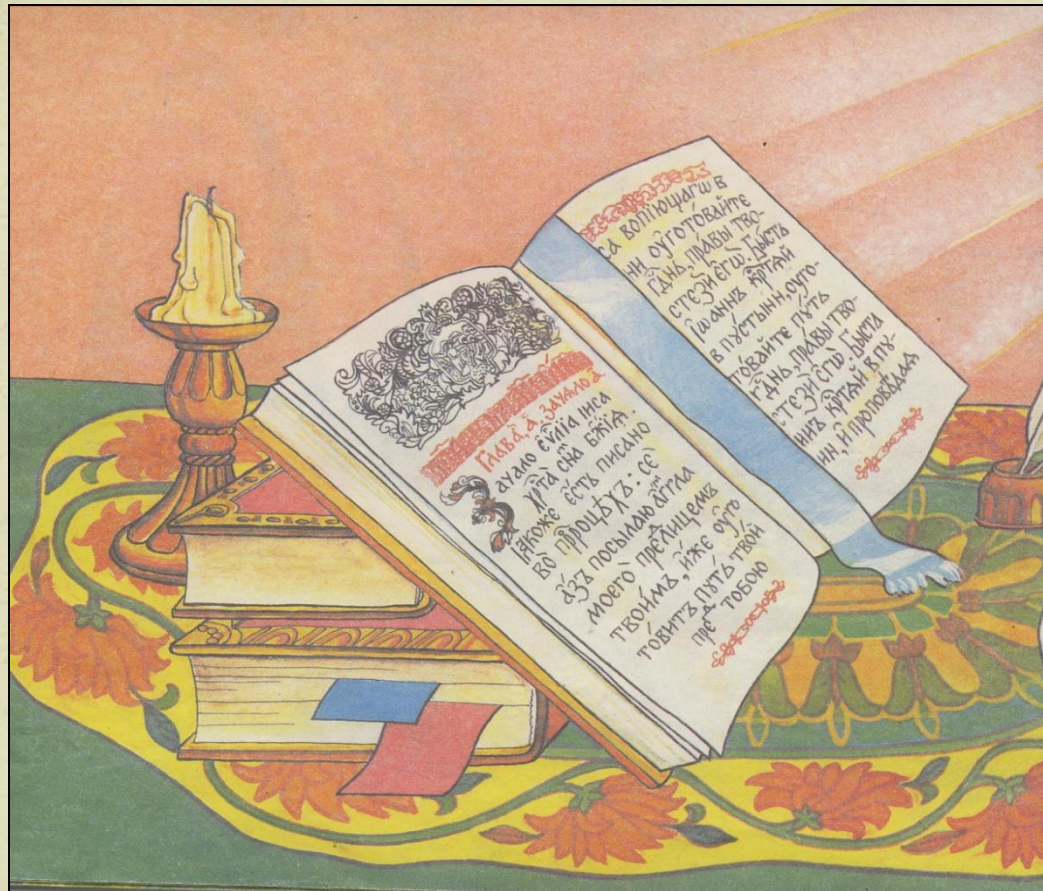 Глава̀, а҃. зачало а҃.
Зачало єѵⷢ҇лїа іи҃са
хрⷭ҇та̀ сн҃а бж҃їѧ.
Ꙗкоже є́сть писано
во прⷪ҇роцѣхъ: се
а́зъ посылаю а҆́гг҃ла
моего̀ преⷣ лицемъ
твои́мъ, и́же оуго
то́витъ пꙋ́ть твой
преⷣ тобою
са вопїющагѡ в
ни оуґото́вайте
гдⷭ҇нь, пра́вы тво-
стезѝ єгѡ̀. Бы́сть
їѡаннъ крⷭ҇тѧ́й
в пꙋсты́ни, оуго-
то́вайте пꙋ́ть
гдⷭ҇нь, пра́вы тво-
стезѝ єгѡ̀. Бы́сть
иннъ крⷭ҇тѧ́й в пꙋ-
ин, и҆ проповѣ́даѧ